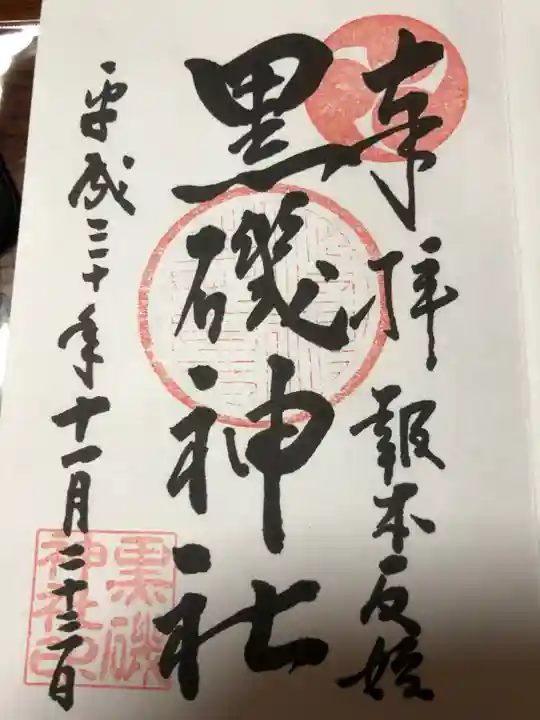 奉拝
報本反始
黒磯神社
平成三十年十一月二十三日
黒磯
神社印